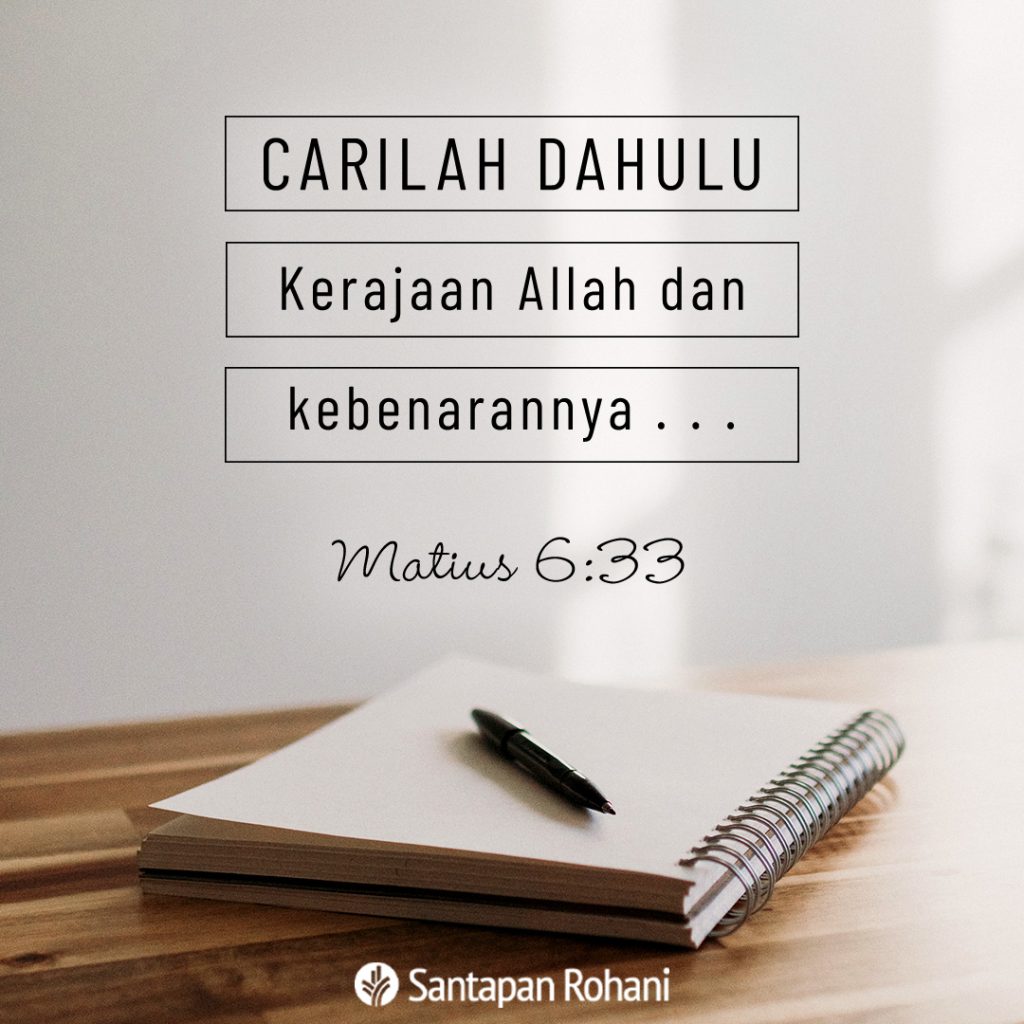 CARILAH DAHULU
Kerajaan Allah dan
kebenarannya . . .
Matius 6:33
Santapan Rohani